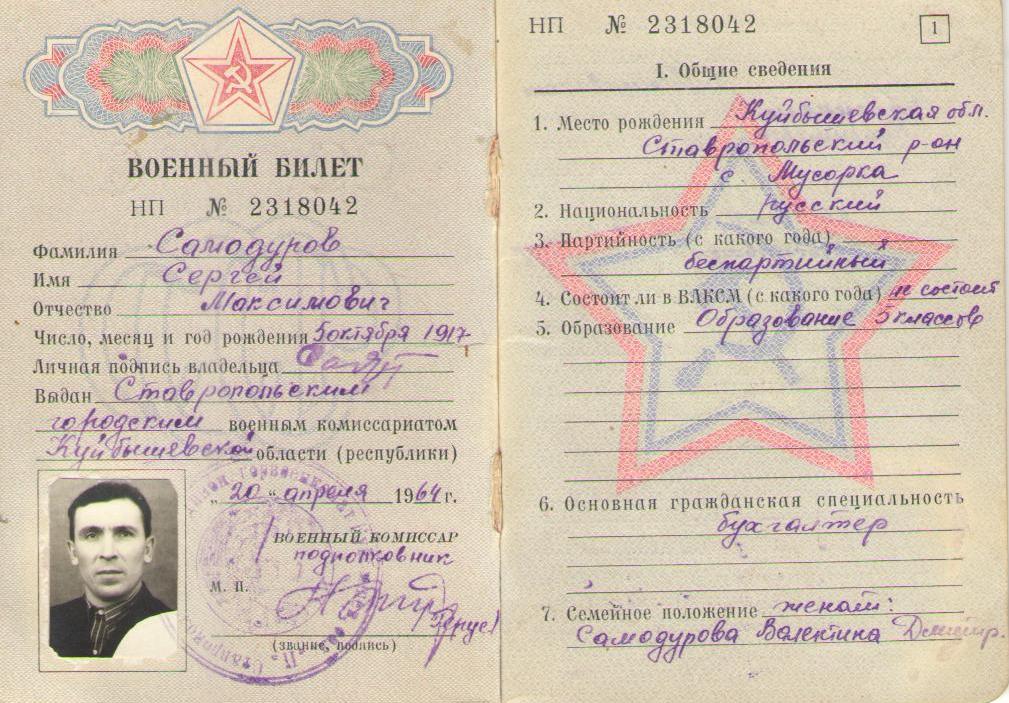 ВОЕННЫЙ БИЛЕТ
НП № 2318042
Фамилия Самодуров
Имя Сергей
Отчество Максимович
Число, месяц и год рождения 5 октября 1917
Личная подпись владельца
Выдан Ставропольским
городским военным комиссариатом
Куйбышевской области (республики)
„20“ апреля 1964 г.
ВОЕННЫЙ КОМИССАР
подполковник
М. П.
(звание, подпись)
НП № 2318042
1
I. Общие сведения
1. Место рождения Куйбышевская обл.
Ставропольский р-он
с Мусорка
2. Национальность русский
3. Партийность (с какого года)
беспартийный
4. Состоит ли в ВЛКСМ (с какого года) не состоит
5. Образование Образование 5 классов
6. Основная гражданская специальность
бухгалтер
7. Семейное положение женат:
Самодурова Валентина